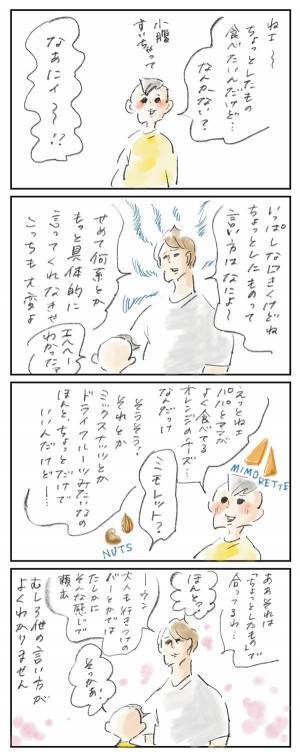 ねェ〜
ちょっとしたもの
食べたいんだけど…
なんかない？
小腹
すいちゃって
なぁにィ〜!?
いっぱしな口きくけどね
ちょっとしたものって
言い方はなによ〜
せめて何系とか
もっと具体的に
言ってくれなきゃ
こっちも大変よ
エヘヘー
わかったァ
えっとねェ
パパとママが
よく食べてる
オレンジのチーズ…
なんだっけ
ミモレット？
MIMORETTE
そうそう！
それとか
ミックスナッツとか
ドライフルーツみたいなの
ほんと、ちょっとだけで
いいんだけどー…
NUTS
ああそれは
「ちょっとしたもの」で
合ってるわ…
ほんと？
ーウン
大人も行きつけの
バーとかでは
たしかに
そんな感じで
頼む
そっかぁ！
むしろ他の言い方が
よくわかりません